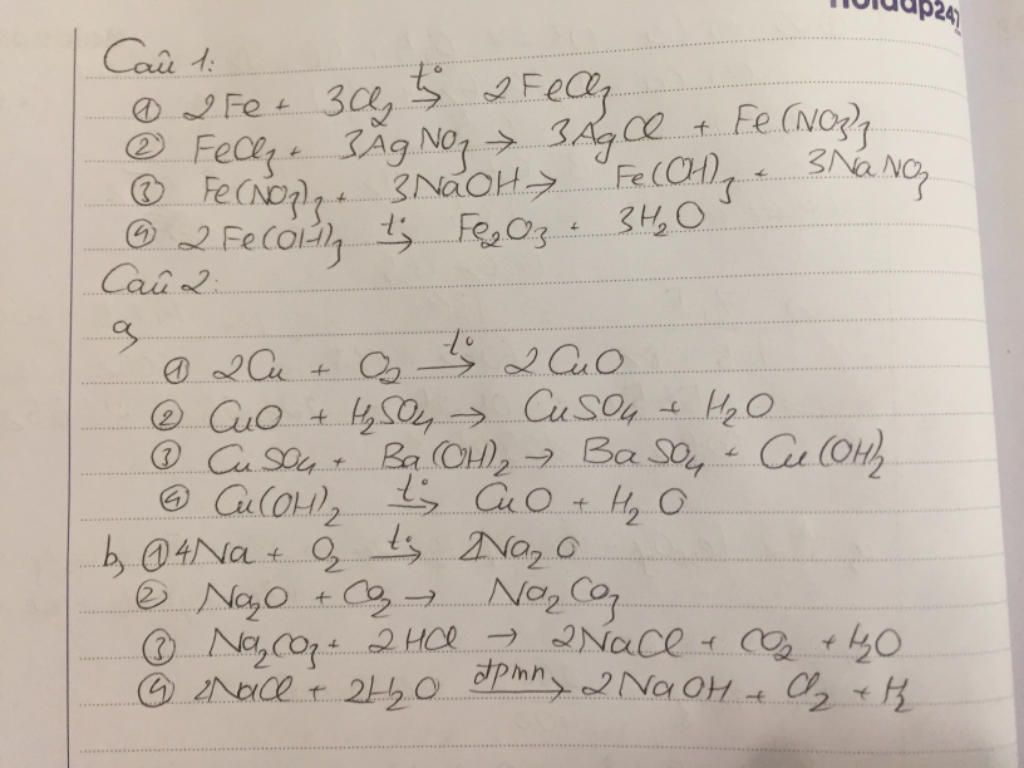 hoidap247
Câu 1:
① 2Fe + 3Cl₂ t°→ 2FeCl₃
② FeCl₃ + 3AgNO₃ → 3AgCl + Fe(NO₃)₃
③ Fe(NO₃)₃ + 3NaOH → Fe(OH)₃ + 3NaNO₃
④ 2Fe(OH)₃ t°→ Fe₂O₃ + 3H₂O
Câu 2:
a,
① 2Cu + O₂ t°→ 2CuO
② CuO + H₂SO₄ → CuSO₄ + H₂O
③ CuSO₄ + Ba(OH)₂ → BaSO₄ + Cu(OH)₂
④ Cu(OH)₂ t°→ CuO + H₂O
b, ① 4Na + O₂ t°→ 2Na₂O
② Na₂O + CO₂ → Na₂CO₃
③ Na₂CO₃ + 2HCl → 2NaCl + CO₂ + H₂O
④ 2NaCl + 2H₂O đpmn→ 2NaOH + Cl₂ + H₂